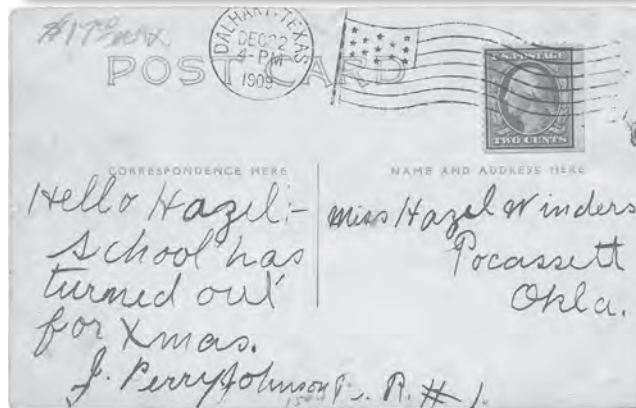 DALHART, TEXAS
DEC 22
4-PM
1909
POST CARD
U.S. POSTAGE
TWO CENTS
CORRESPONDENCE HERE
NAME AND ADDRESS HERE
Hello Hazel:-
School has
turned out
for Xmas.
J. Perry Johnson
Miss Hazel Winders
Pocassett
Okla.
R. #1.